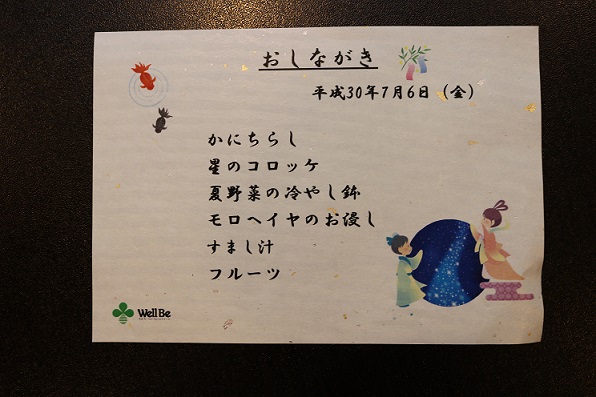 おしながき
平成30年7月6日（金）
かにちらし
星のコロッケ
夏野菜の冷やし鉢
モロヘイヤのお浸し
すまし汁
フルーツ
Well Be